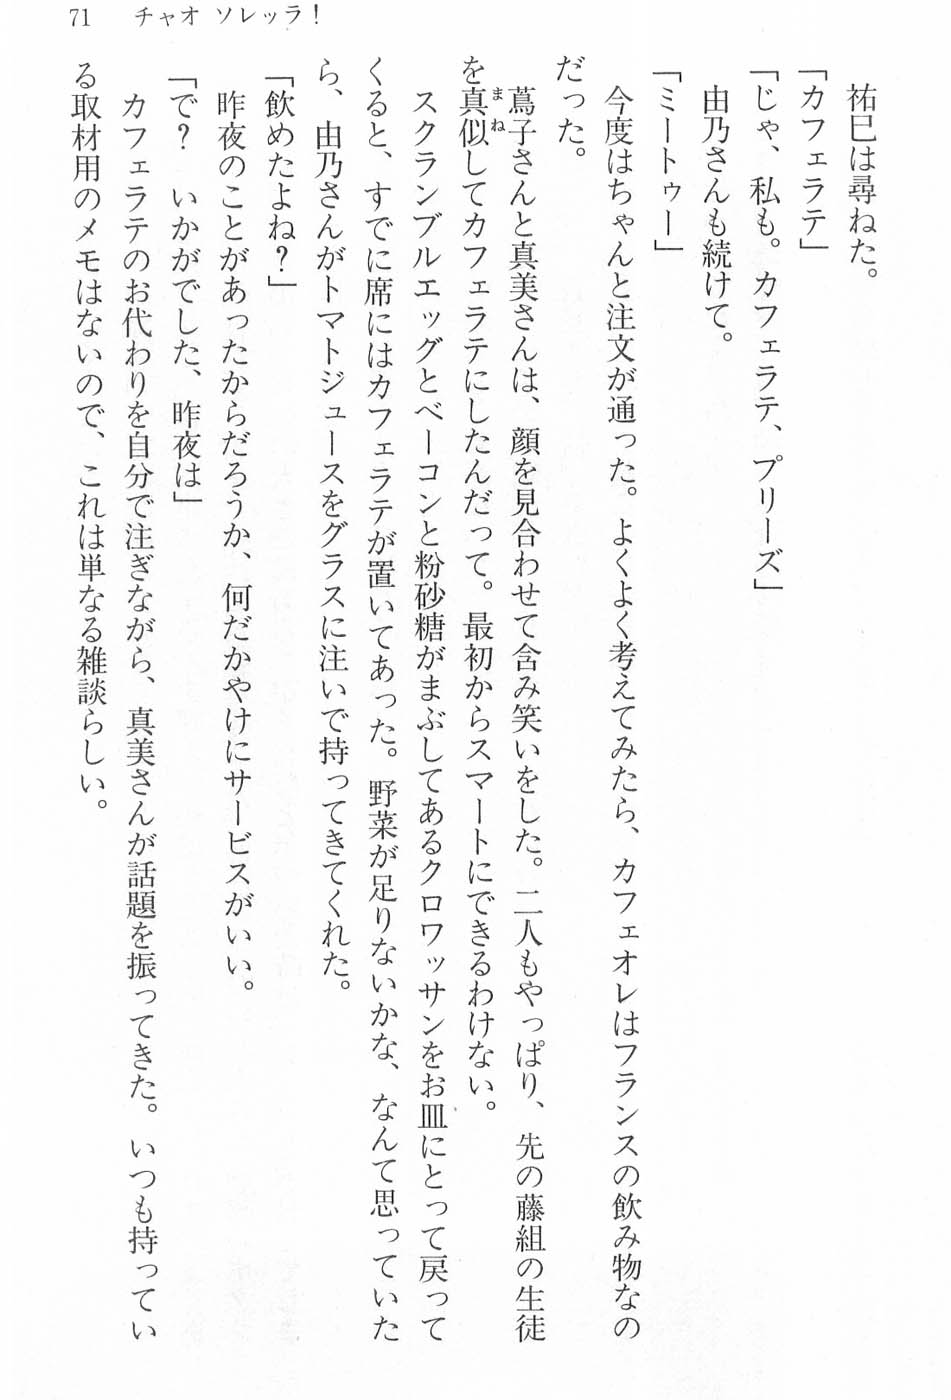 71　チャオ ソレッラ！
祐巳は尋ねた。
「カフェラテ」
「じゃ、私も。カフェラテ、プリーズ」
由乃さんも続けて。
「ミートゥー」
今度はちゃんと注文が通った。よくよく考えてみたら、カフェオレはフランスの飲み物なの
だった。
蔦子さんと真美さんは、顔を見合わせて含み笑いをした。二人もやっぱり、先の藤組の生徒
を真似してカフェラテにしたんだって。最初からスマートにできるわけない。
スクランブルエッグとベーコンと粉砂糖がまぶしてあるクロワッサンをお皿にとって戻って
くると、すでに席にはカフェラテが置いてあった。野菜が足りないかな、なんて思っていた
ら、由乃さんがトマトジュースをグラスに注いで持ってきてくれた。
「飲めたよね？」
昨夜のことがあったからだろうか、何だかやけにサービスがいい。
「で？　いかがでした、昨夜は」
カフェラテのお代わりを自分で注ぎながら、真美さんが話題を振ってきた。いつも持ってい
る取材用のメモはないので、これは単なる雑談らしい。